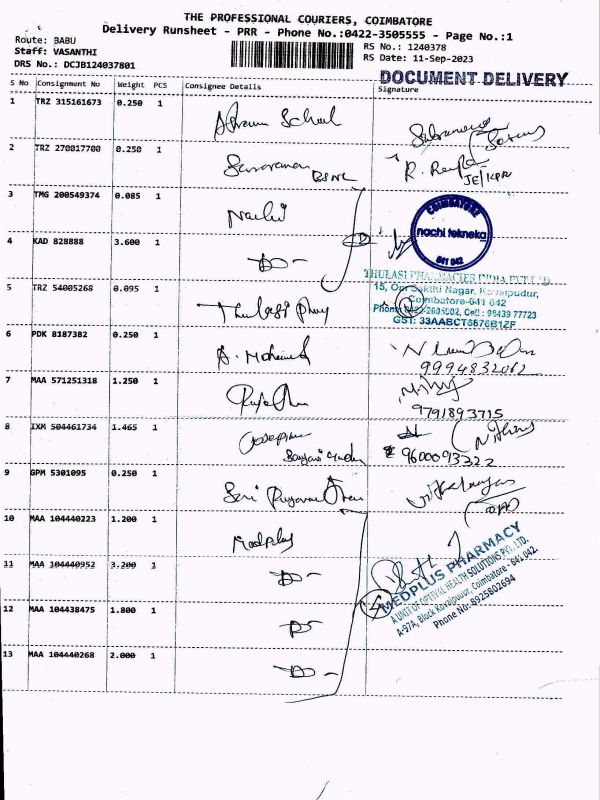 THE PROFESSIONAL COURIERS, COIMBATORE
Delivery Runsheet - PRR - Phone No.:0422-3505555 - Page No.:1
Route: BABU
Staff: VASANTHI
DRS No.: DCJB124037801
RS No.: 1240378
RS Date: 11-Sep-2023
DOCUMENT DELIVERY
S No Consignment No Weight PCS Consignee Details Signature
1 TRZ 315161673 0.250 1
2 TRZ 270017700 0.250 1 Saravanan BSNL
JE/KPR
3 TMG 200549374 0.085 1 Nachi
COIMBATORE
nachi tekneka
641 042
4 KAD 828888 3.600 1 -DO-
THULASI PHARMACIES INDIA PVT LTD
15, Om Sakthi Nagar, Kovaipudur,
Coimbatore-641 042
Phone: 0422-2605502, Cell: 99439 77723
GST: 33AABCT6676B1ZF
5 TRZ 54005268 0.095 1 Thulasi Phar
6 PDK 8187382 0.250 1 A. Mohamed
9994832062
7 MAA 571251318 1.250 1
9791893715
8 IXM 504461734 1.465 1
Nithin
9600093222
9 GPM 5301095 0.250 1
10 MAA 104440223 1.200 1 Medplus
MEDPLUS PHARMACY
A UNIT OF OPTIVAL HEALTH SOLUTIONS PVT. LTD.
A-97A, Block Kovaipudur, Coimbatore - 641 042.
Phone No: 8925802694
11 MAA 104440952 3.200 1 -DO-
12 MAA 104438475 1.800 1
13 MAA 104440268 2.000 1 -DO-